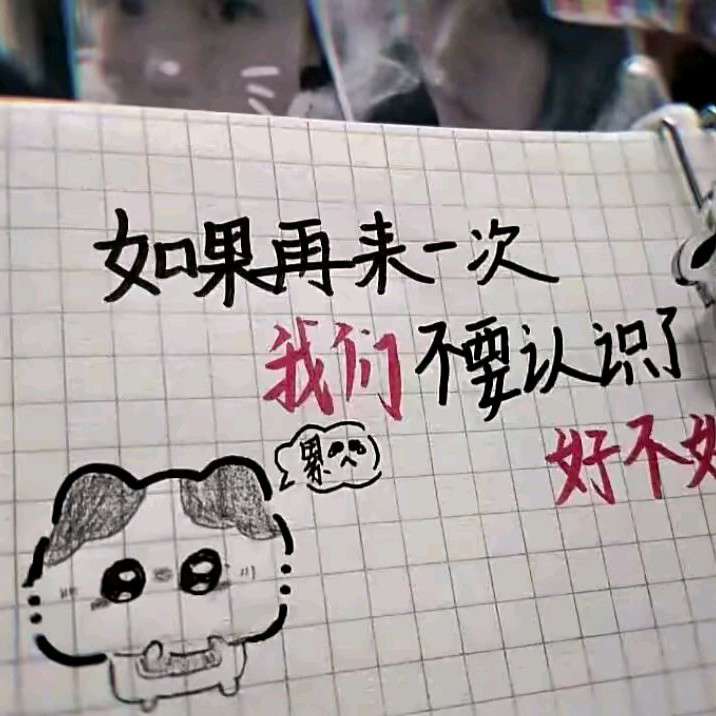 如果再来一次
我们不要认识了
好不好
累